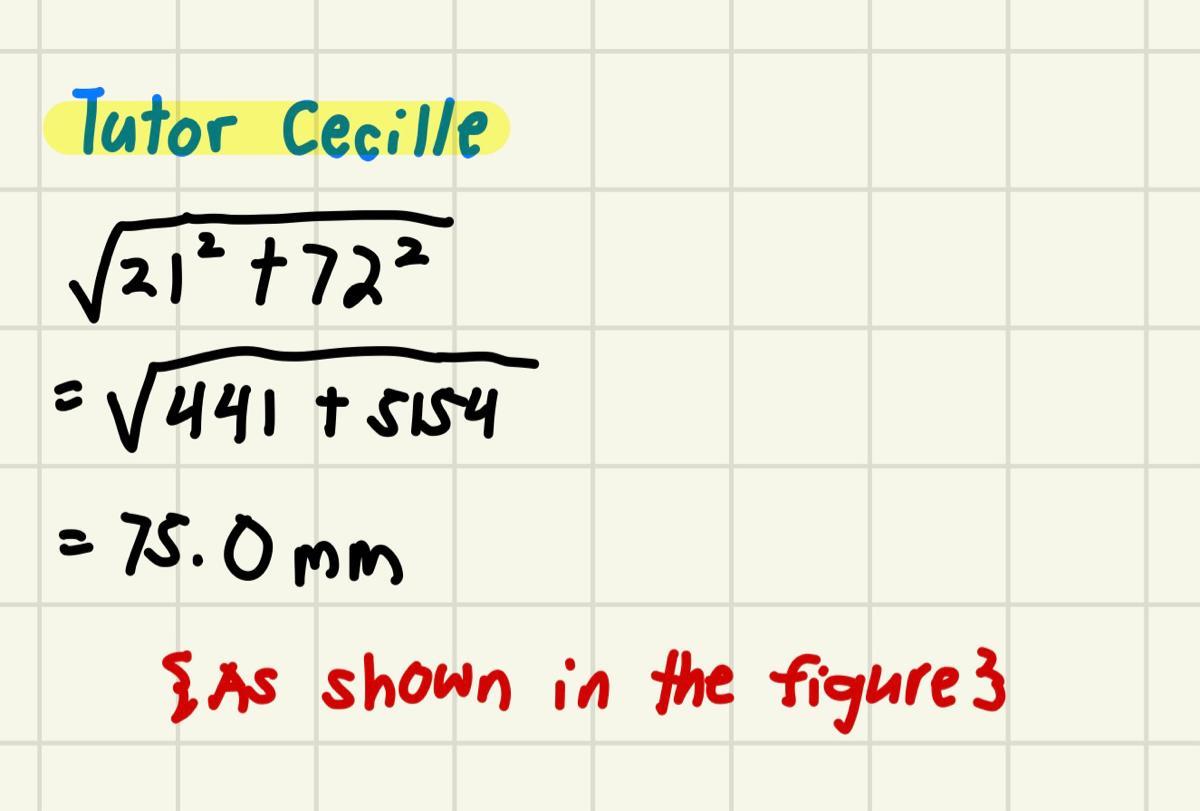 Tutor Cecille
√21² + 72²
= √441 + 5154
= 75.0 mm
{As shown in the figure}